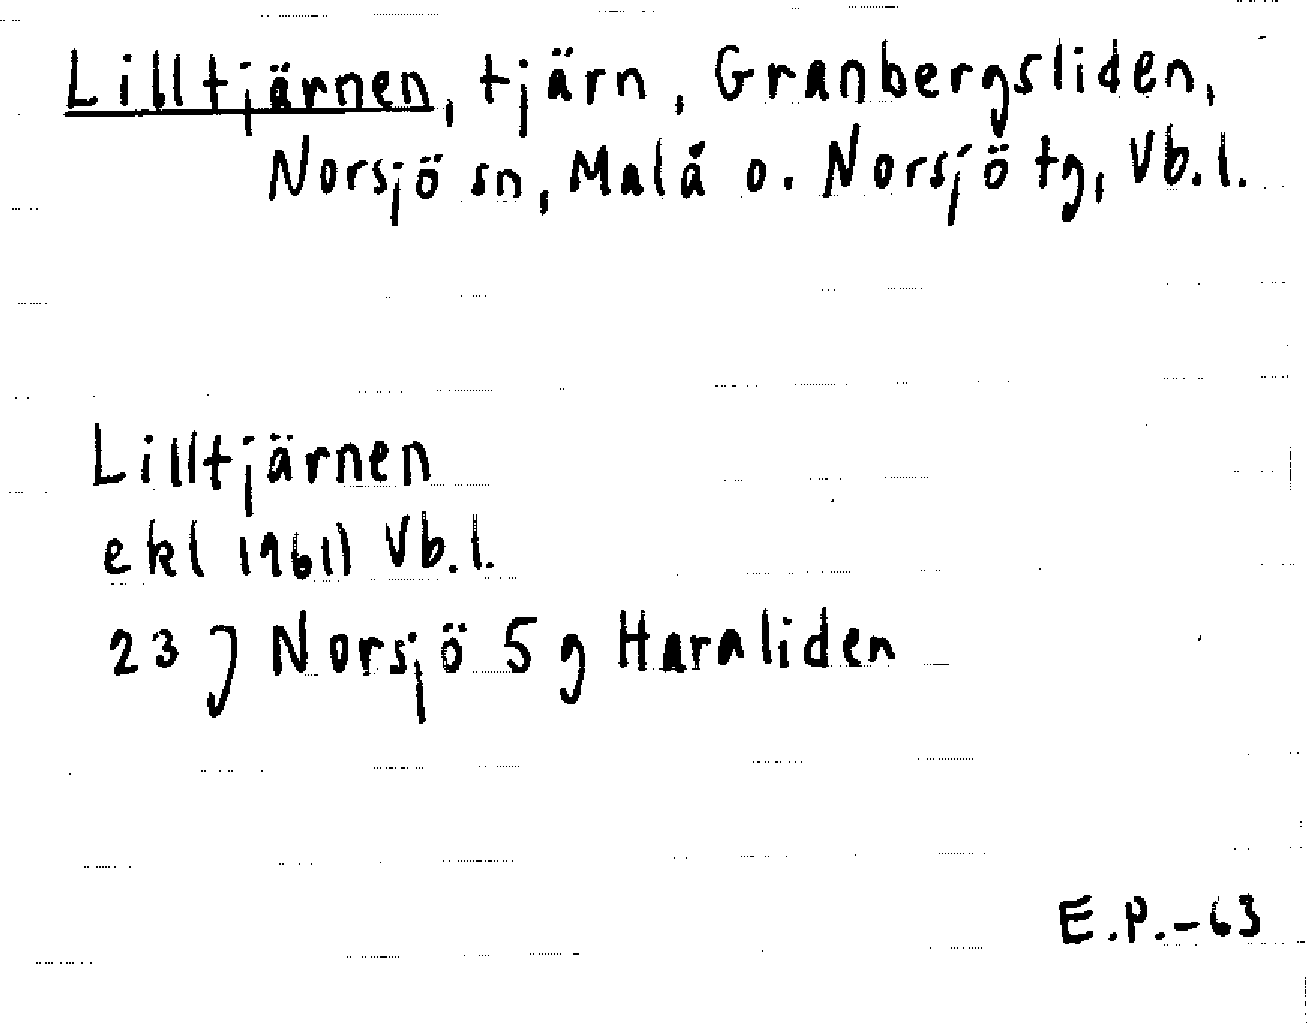 Lilltjärnen, tjärn, Granbergsliden,
Norsjö sn, Malå o. Norsjö tg, Vb.l.
Lilltjärnen
ekl 1961) Vb.l.
23 J Norsjö 5 g Haraliden
E.P.-63